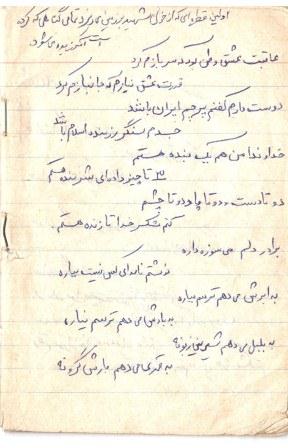 اولین قطره‌ای که از خون شهید بر زمین می‌ریزد تمامی گناهانی که کرده
است آمرزیده می‌شود
عاقبت عشق وطن کوردسر بازم کرد
قدرت عشق بنازم که جانبازم کرد
دوست دارم کفنم پرچم ایران باشد
جسدم سنگر رزمنده اسلام باشد
خداوندا من هم یک بنده هستم
۳ تا چیز داده‌ای شرمنده هستم
دو تا دست و دو تا پا و دو تا چشم
کنم شکر خدا تا زنده هستم.
برادر دلم می‌سوزه داره
نوشتم نامه‌ای کس نیست بیاره
به ابرش می‌دهم ترسم بباره
به بارش می‌دهم ترسم نیاره
به بلبل می‌دهم شیرین
به می‌دهم بارش